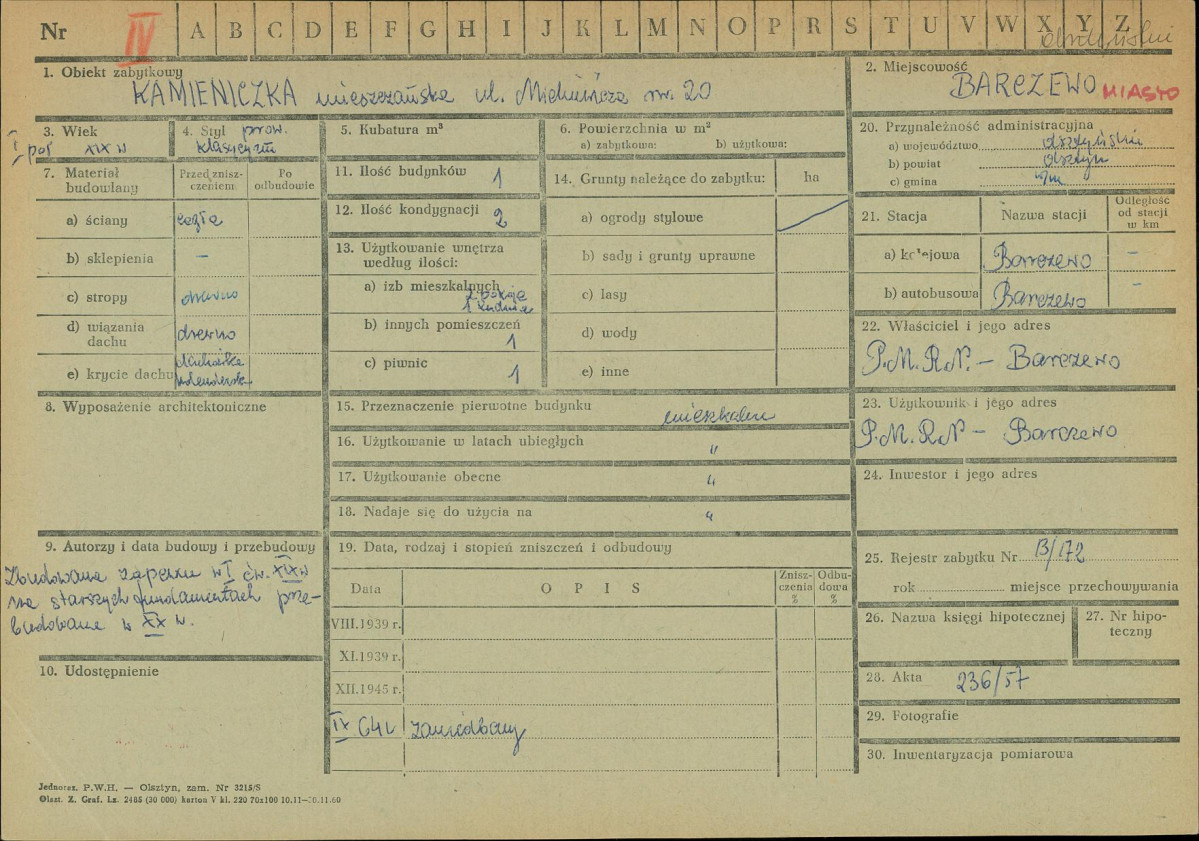 Nr IV A B C D E F G H I J K L M N O P R S T U V W X Y Z
olsztyński
1. Obiekt zabytkowy
KAMIENICZKA mieszczańska ul. Mickiewicza nr. 20
2. Miejscowość
BARCZEWO MIASTO
3. Wiek
I poł XIX w
4. Styl prow.
klasycyzm
5. Kubatura m³
6. Powierzchnia w m²
a) zabytkowa: b) użytkowa:
20. Przynależność administracyjna
a) województwo olsztyński
b) powiat olsztyn
c) gmina
7. Materiał budowlany
Przed znisz-
czeniem
Po
odbudowie
a) ściany cegła
b) sklepienia –
c) stropy drewno
d) wiązania
dachu drewno
e) krycie dachu dachówka
holenderska
11. Ilość budynków 1
12. Ilość kondygnacji 2
13. Użytkowanie wnętrza
według ilości:
a) izb mieszkalnych 2 pokoje
1 kuchnia
b) innych pomieszczeń
1
c) piwnic 1
14. Grunty należące do zabytku: ha
a) ogrody stylowe
b) sady i grunty uprawne
c) lasy
d) wody
e) inne
21. Stacja Nazwa stacji
Odległość
od stacji
w km
a) kolejowa Barczewo –
b) autobusowa Barczewo –
22. Właściciel i jego adres
P.M.R.N. – Barczewo
8. Wyposażenie architektoniczne
15. Przeznaczenie pierwotne budynku mieszkalne
16. Użytkowanie w latach ubiegłych "
17. Użytkowanie obecne "
18. Nadaje się do użycia na "
23. Użytkownik i jego adres
P.M.R.N – Barczewo
24. Inwestor i jego adres
9. Autorzy i data budowy i przebudowy
Zbudowana zapewne w I ćw. XIX w
na starszych fundamentach prze-
budowana w XX w.
10. Udostępnienie
19. Data, rodzaj i stopień zniszczeń i odbudowy
Data OPIS
Znisz-
czenia
%
Odbu-
dowa
%
VIII.1939 r.
XI.1939 r.
XII.1945 r.
IX 64r zaniedbany
25. Rejestr zabytku Nr B/172
rok miejsce przechowywania
26. Nazwa księgi hipotecznej
27. Nr hipo-
teczny
28. Akta 236/57
29. Fotografie
30. Inwentaryzacja pomiarowa
Jednoraz. P.W.H. — Olsztyn, zam. Nr 3215/S
Olszt. Z. Graf. Lz. 2485 (30 000) karton V kl. 220 70x100 10.11—30.11.60